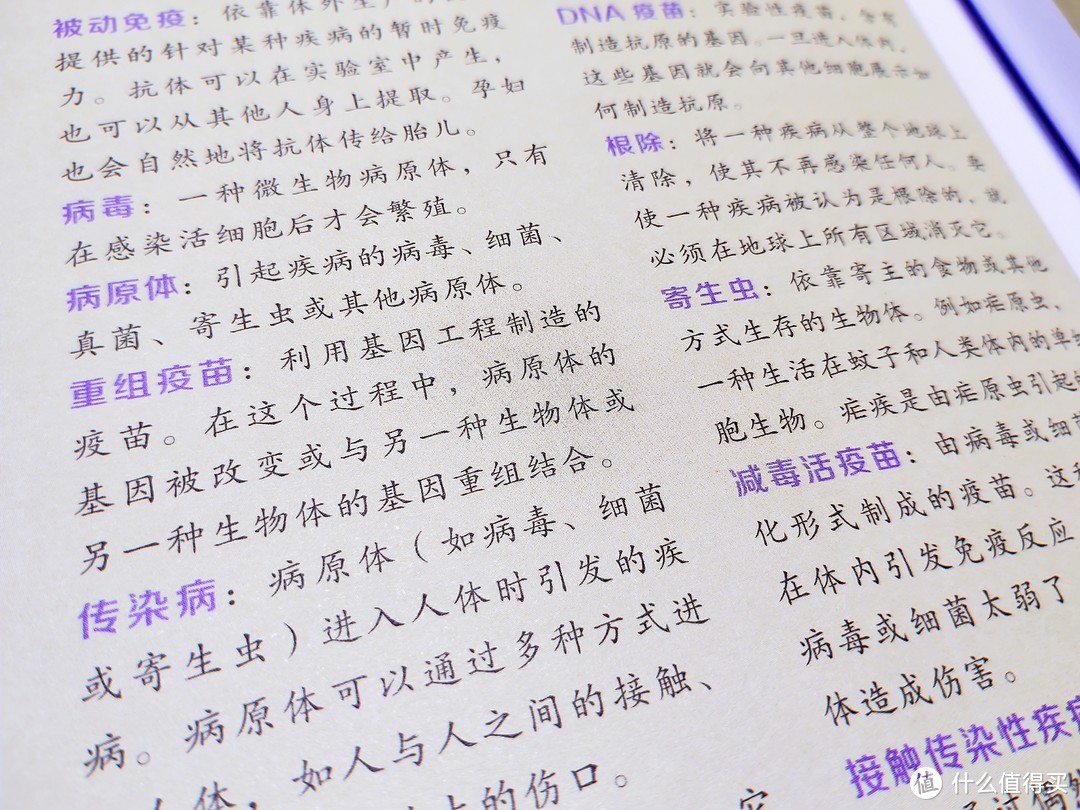 被动免疫：依靠体外生产的
提供的针对某种疾病的暂时免疫
力。抗体可以在实验室中产生，
也可以从其他人身上提取。孕妇
也会自然地将抗体传给胎儿。
病毒：一种微生物病原体，只有
在感染活细胞后才会繁殖。
病原体：引起疾病的病毒、细菌、
真菌、寄生虫或其他病原体。
重组疫苗：利用基因工程制造的
疫苗。在这个过程中，病原体的
基因被改变或与另一种生物体或
另一种生物体的基因重组结合。
传染病：病原体（如病毒、细菌
或寄生虫）进入人体时引发的疾
病。病原体可以通过多种方式进
人体，如人与人之间的接触、
上的伤口。
DNA疫苗：实验性疫苗，含有
制造抗原的基因。一旦进入体内，
这些基因就会向其他细胞展示如
何制造抗原。
根除：将一种疾病从整个地球上
清除，使其不再感染任何人。要
使一种疾病被认为是根除的，就
必须在地球上所有区域消灭它。
寄生虫：依靠寄主的食物或其他
方式生存的生物体。例如疟原虫，
一种生活在蚊子和人类体内的单细
胞生物。疟疾是由疟原虫引起
减毒活疫苗：由病毒或细菌
化形式制成的疫苗。这种
在体内引发免疫反应
病毒或细菌太弱了
体造成伤害。
接触传染性疾病
值 什么值得买